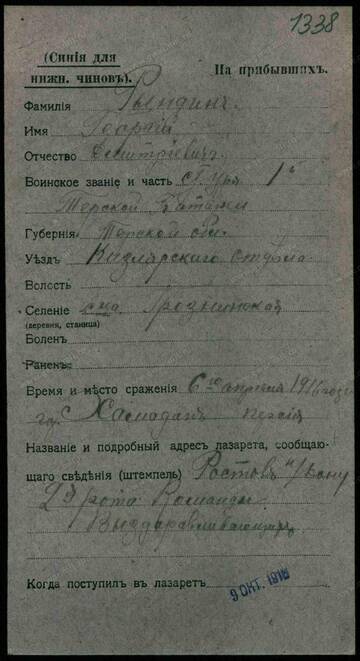 1338
(Синія для
нижн. чиновъ).
На прибывшихъ.
Фамилія Рындинъ
Имя Георгій
Отчество Дмитріевичъ
Воинское званіе и часть ст. уря 1й
Терской Батареи
Губернія Терской обл.
Уѣздъ Кизлярскаго отдѣла
Волость
Селеніе ст-ца Грознинская
(деревня, станица)
Боленъ
Раненъ
Время и мѣсто сраженія 6го апрѣля 1916 года
гор. Хамадань Персія
Названіе и подробный адресъ лазарета, сообщаю-
щаго свѣдѣнія (штемпель) Ростовъ н/Дону
2я рота Команды
Выздоравливающихъ
Когда поступил въ лазаретъ 9 ОКТ. 1916